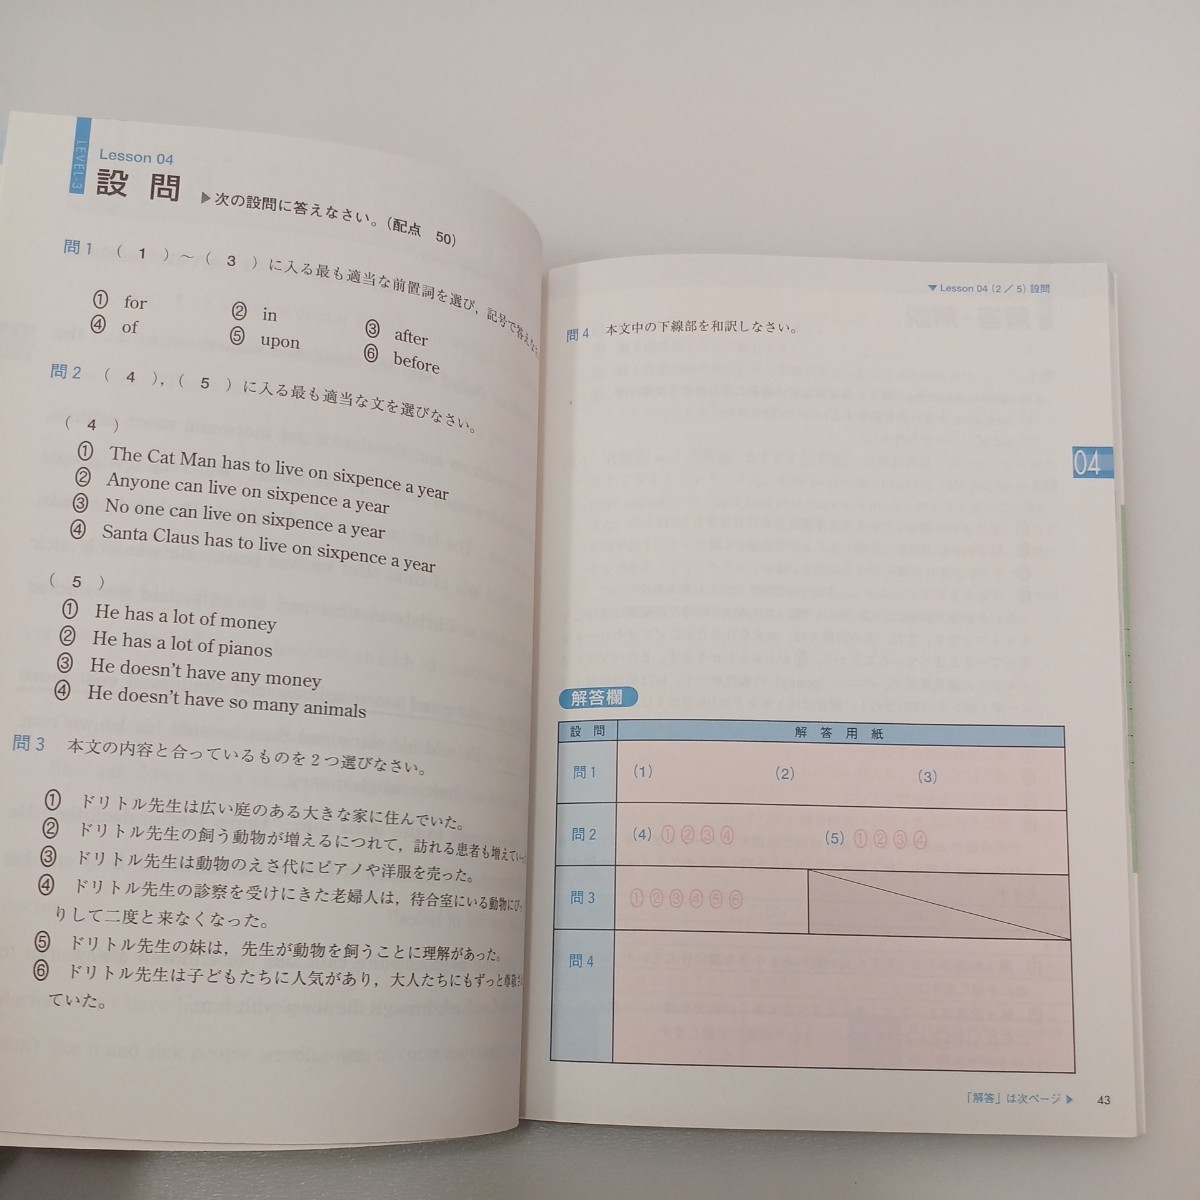 LEVEL-3
Lesson 04
設 問 ▶次の設問に答えなさい。(配点 50)
問1 ( 1 )～( 3 )に入る最も適当な前置詞を選び，記号で答えな
① for ② in ③ after
④ of ⑤ upon ⑥ before
問2 ( 4 ),( 5 )に入る最も適当な文を選びなさい。
( 4 )
① The Cat Man has to live on sixpence a year
② Anyone can live on sixpence a year
③ No one can live on sixpence a year
④ Santa Claus has to live on sixpence a year
( 5 )
① He has a lot of money
② He has a lot of pianos
③ He doesn't have any money
④ He doesn't have so many animals
問3 本文の内容と合っているものを2つ選びなさい。
① ドリトル先生は広い庭のある大きな家に住んでいた。
② ドリトル先生の飼う動物が増えるにつれて，訪れる患者も増えてい
③ ドリトル先生は動物のえさ代にピアノや洋服を売った。
④ ドリトル先生の診察を受けにきた老婦人は，待合室にいる動物にび
りして二度と来なくなった。
⑤ ドリトル先生の妹は，先生が動物を飼うことに理解があった。
⑥ ドリトル先生は子どもたちに人気があり，大人たちにもずっと尊敬
ていた。
▼Lesson 04 (2／5) 設問
問4 本文中の下線部を和訳しなさい。
04
解答欄
設 問 解 答 用 紙
問1 (1) (2) (3)
問2 (4) ①②③④ (5) ①②③④
問3 ①②③④⑤⑥
問4
「解答」は次ページ▶ 43